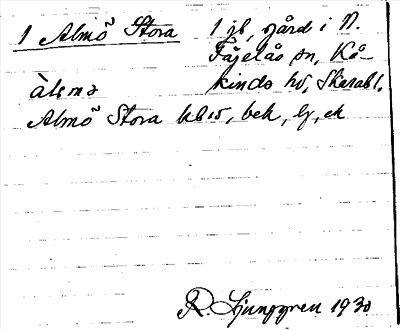 1 Almö Stora 1 jb, gård i N.
Fågelås sn, Kå-
kinds hd, Skarabl.
àlmə
Almö Stora kb 10, bek, lj, ek
R. Ljunggren 1930